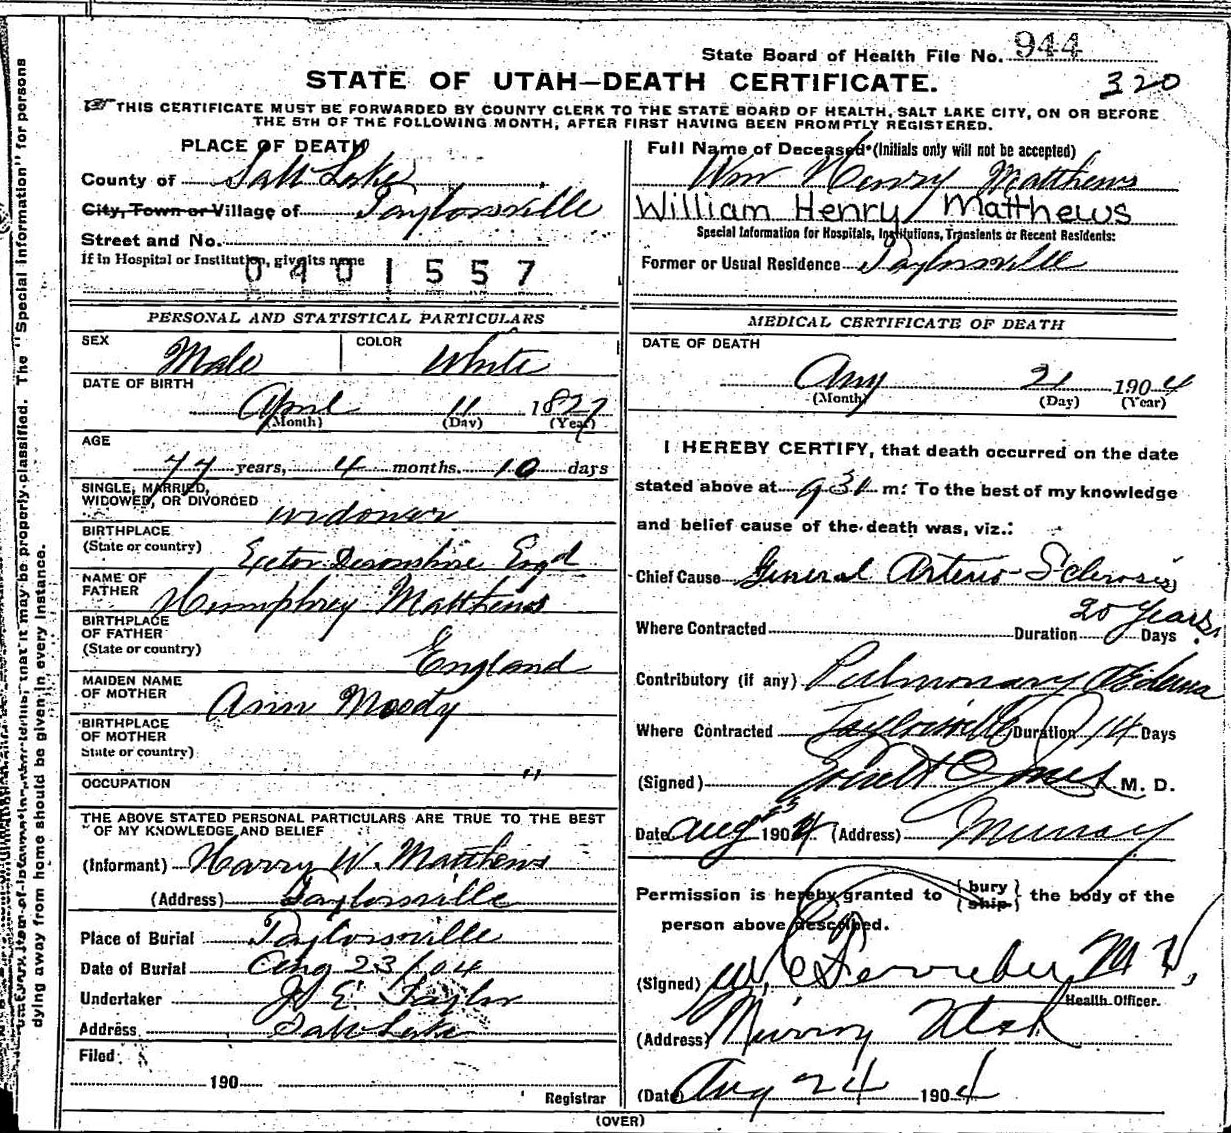 State Board of Health File No. 944
STATE OF UTAH—DEATH CERTIFICATE.
320
THIS CERTIFICATE MUST BE FORWARDED BY COUNTY CLERK TO THE STATE BOARD OF HEALTH, SALT LAKE CITY, ON OR BEFORE
THE 5TH OF THE FOLLOWING MONTH, AFTER FIRST HAVING BEEN PROMPTLY REGISTERED.
PLACE OF DEATH
County of Salt Lake
City, Town or Village of Taylorsville
Street and No.
If in Hospital or Institution, give its name
0401557
PERSONAL AND STATISTICAL PARTICULARS
SEX Male COLOR White
DATE OF BIRTH
April 11 1827
(Month) (Day) (Year)
AGE
77 years, 4 months. 10 days
SINGLE, MARRIED,
WIDOWED, OR DIVORCED widower
BIRTHPLACE
(State or country) Exeter Devonshire Engd
NAME OF
FATHER Humphrey Matthews
BIRTHPLACE
OF FATHER
(State or country) England
MAIDEN NAME
OF MOTHER Ann Moody
BIRTHPLACE
OF MOTHER
State or country)
"
OCCUPATION
THE ABOVE STATED PERSONAL PARTICULARS ARE TRUE TO THE BEST
OF MY KNOWLEDGE AND BELIEF
(Informant) Harry W. Matthews
(Address) Taylorsville
Place of Burial Taylorsville
Date of Burial Aug 23/04
Undertaker J. E. Taylor
Address Salt Lake
Filed
190
Registrar
Full Name of Deceased (Initials only will not be accepted)
Wm Henry Matthews
William Henry Matthews
Special Information for Hospitals, Institutions, Transients or Recent Residents:
Former or Usual Residence Taylorsville
MEDICAL CERTIFICATE OF DEATH
DATE OF DEATH
Aug 21 1904
(Month) (Day) (Year)
I HEREBY CERTIFY, that death occurred on the date
stated above at m. To the best of my knowledge
and belief cause of the death was, viz.:
Chief Cause General Arterio-Sclerosis
20 years
Where Contracted Duration Days
Contributory (if any) Pulmonary Œdema
Where Contracted Taylorsville Duration 14 Days
(Signed) Jones M. D.
Date Aug 23 1904 (Address) Murray
Permission is hereby granted to {bury ship} the body of the
person above described.
(Signed) M D,
Health Officer.
(Address) Murray Utah
(Date) Aug 24 1904
(OVER)
dying away from home should be given in every instance.
that it may be properly classified. The "Special Information" for persons